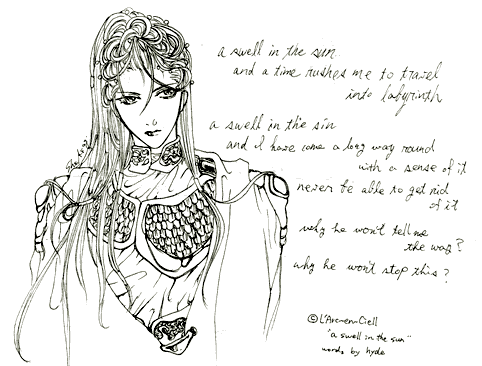 a swell in the sun
and a time rushes me to travel
into labyrinth
a swell in the sin
and I have come a long way round
with a sense of it
never be able to get rid
of it
why he won't tell me
the way?
why he won't stop this?
©L'Arc-en-Ciell
"a swell in the sun"
words by hyde